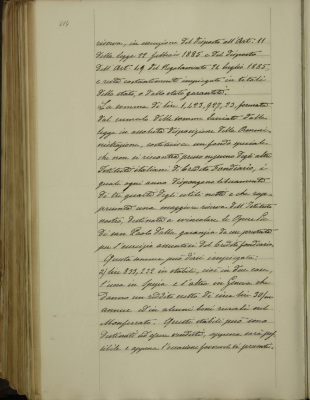 riserva, in esecuzione del disposto dell'Art. 11
della legge 22 febbraio 1885 e del disposto
dell'Art. 49 del Regolamento 24 luglio 1885,
e resta costantemente impiegata in titoli
dello stato, o dallo stato garantiti.
La somma di lire 1,423,929,23, formata
dal cumulo delle somme lasciate dalla
legge in assoluta disposizione della Ammi-
nistrazione, costituisce un fondo speciale
che non si riscontra presso nessuno degli altri
Istituti italiani di Credito Fondiario, i
quali ogni anno dispongono liberamente
di tre quarti degli utili netti e che rap-
presenta una maggiore riserva dell'Istituto
nostro, destinata a svincolare le Opere Pie
di San Paolo dalla garanzia da esse prestata
per l'esercizio assuntosi del Credito fondiario.
Questa somma può dirsi impiegata:
a) lire 833,232 in stabili, cioè in due case,
l'una in Spezia e l'altra in Genova che
danno un reddito netto di circa lire 30/m
annue ed in alcuni beni rurali nel
Monferrato. Questi stabili però sono
destinati ad essere venduti, appena sarà pos-
sibile e appena l'occasione favorevole si presenti.